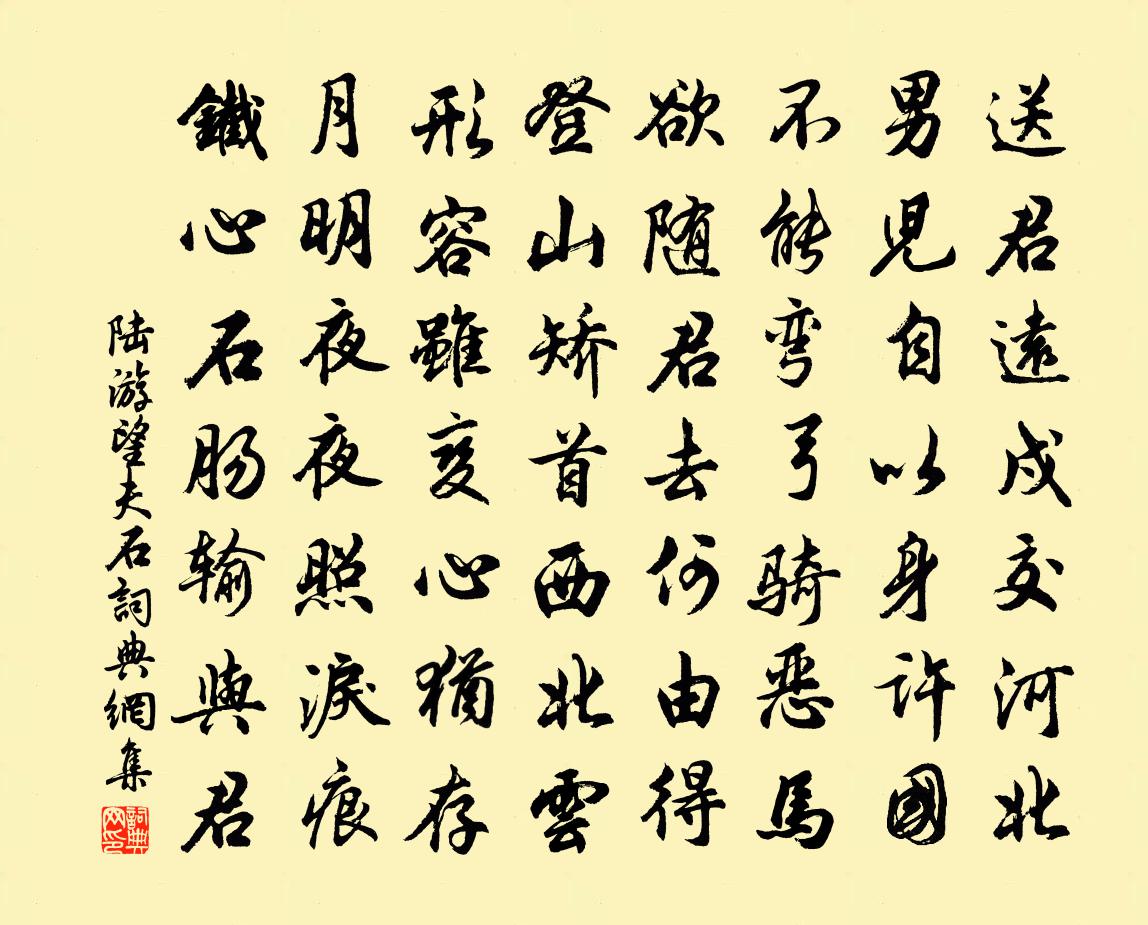 送君遠戍交河北
男兒自以身許國
不能彎弓騎惡馬
欲随君去何由得
登山矯首西北雲
形容雖变心猶存
月明夜夜照淚痕
鐵心石肠输與君
陆游望夫石詞典網集
詞典网印